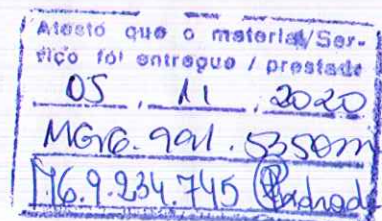 Atesto que o material/Ser-
viço foi entregue / prestado
05 . 11 . 2020
MG.
M6.9.234.745